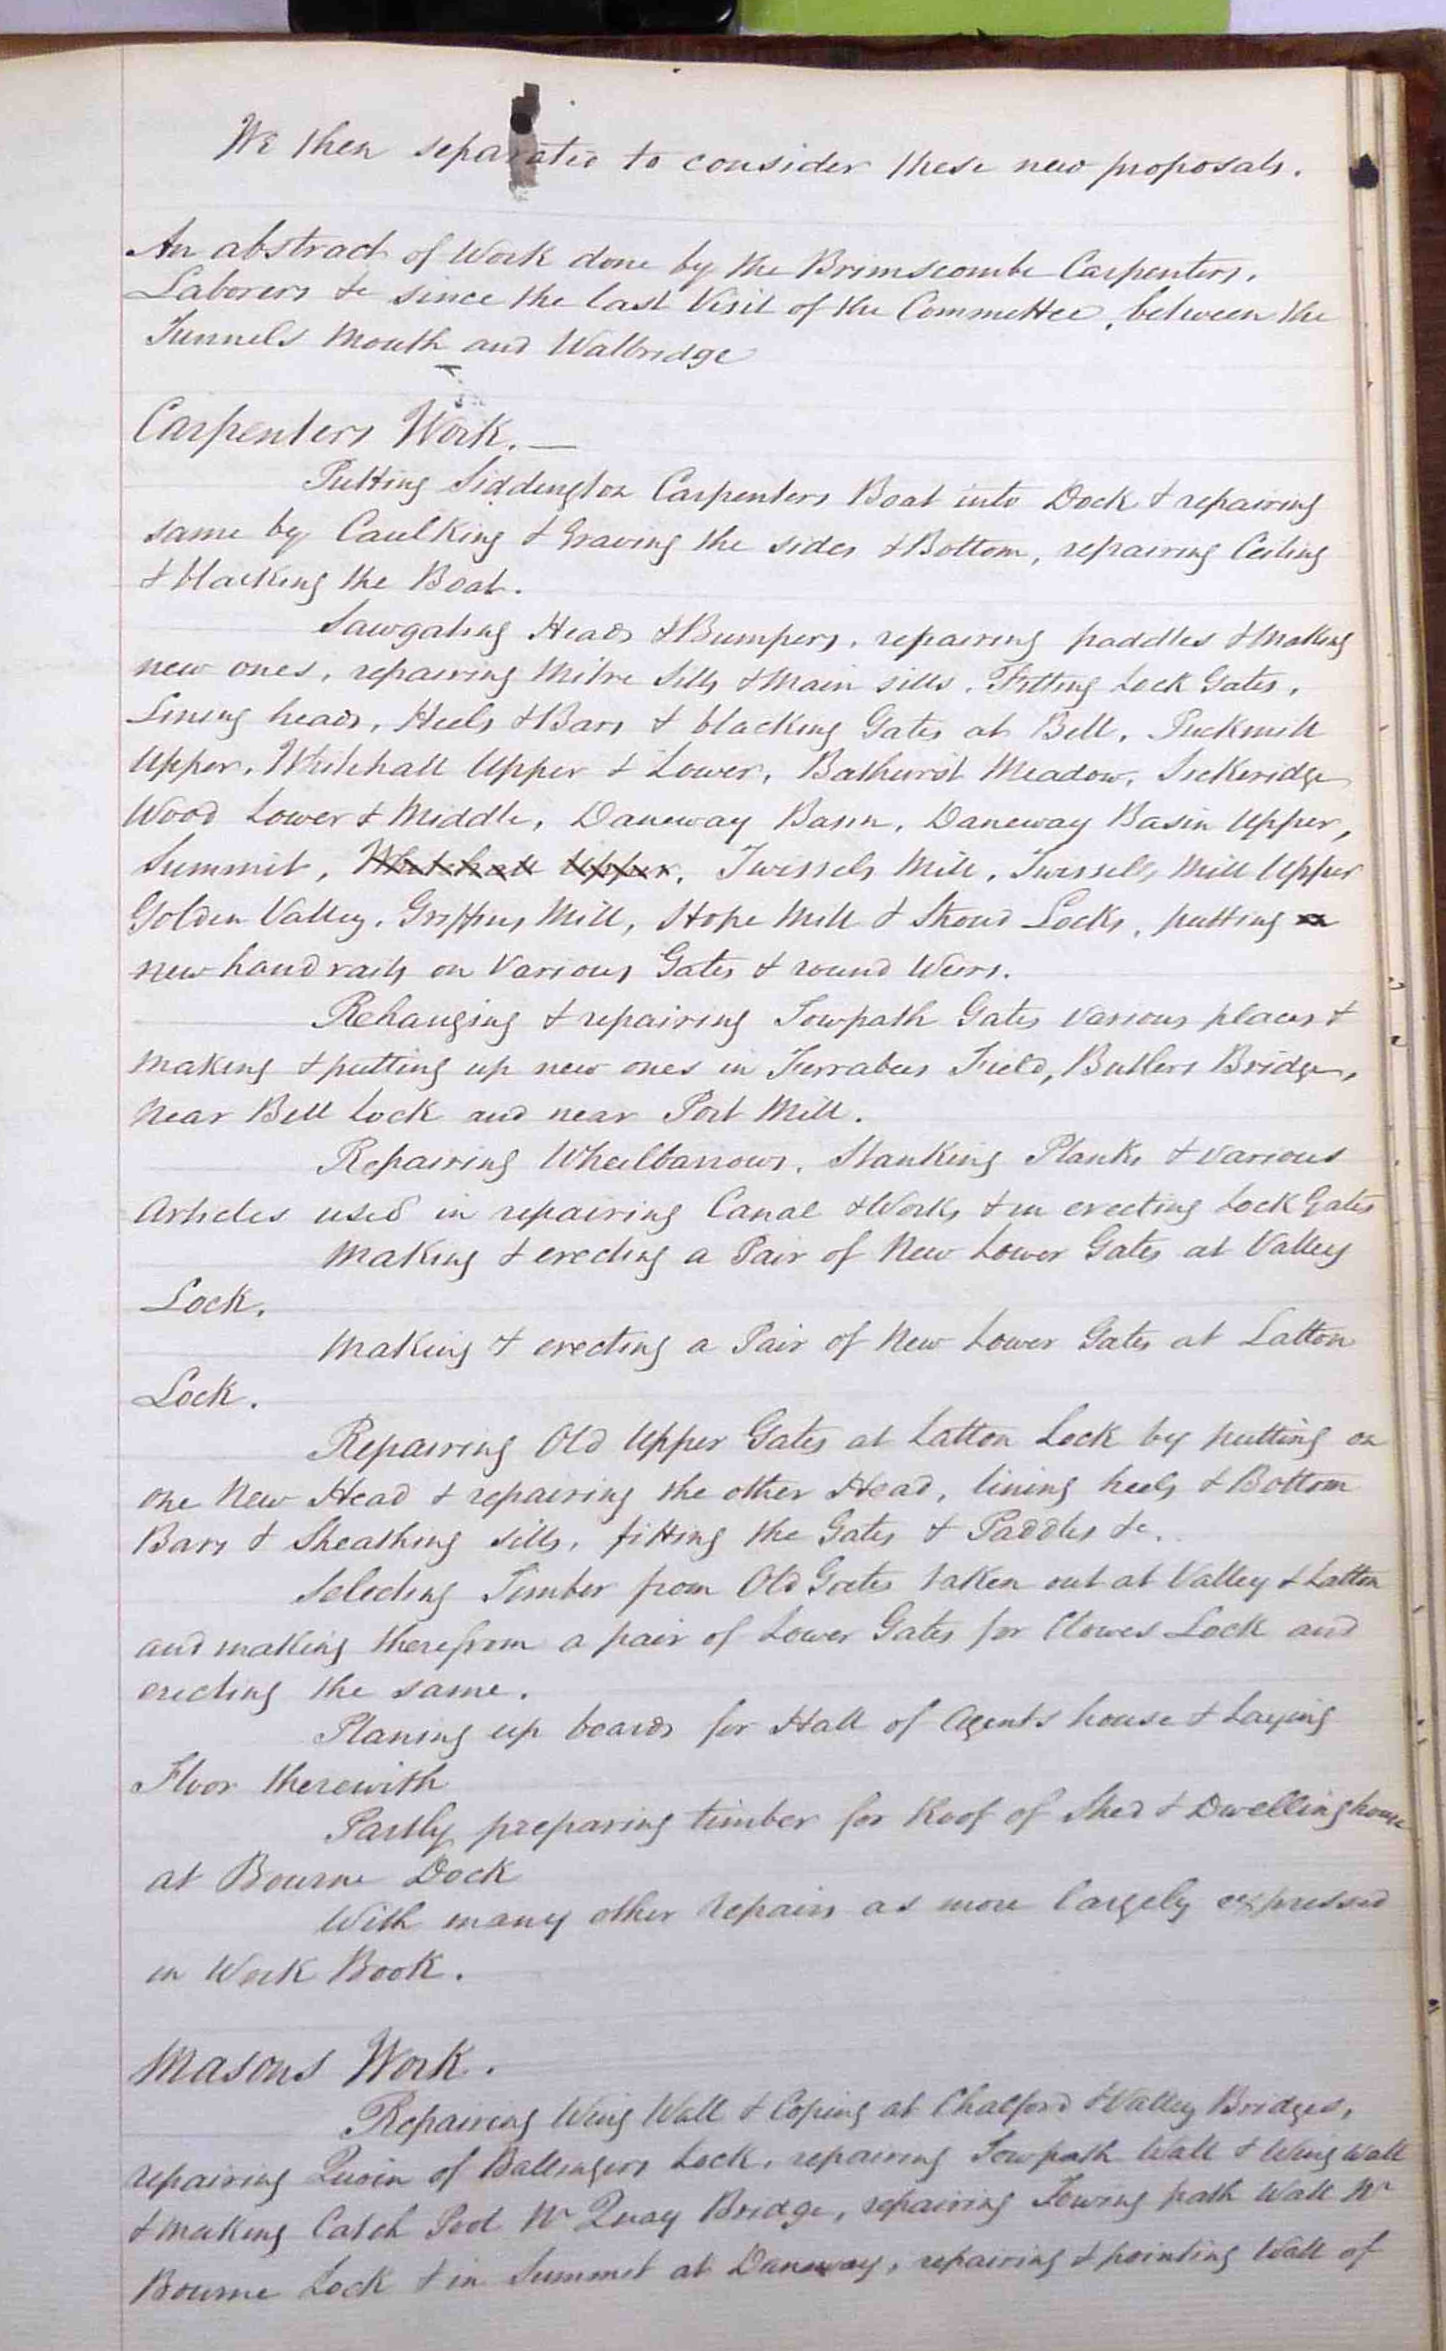 We then separated to consider these new proposals.
An abstract of Work done by the Brimscombe Carpenters,
Laborers &c since the last Visit of the Committee, between the
Tunnels Mouth and Walbridge
Carpenters Work. —
Putting Siddington Carpenters Boat into Dock & repairing
same by Caulking & Graving the sides & Bottom, repairing Ceiling
& blacking the Boat.
Heads & Bumpers, repairing paddles & making
new ones, repairing Mitre Sills & Main sills. Fitting Lock Gates,
Lining heads, Heels & Bars & blacking Gates at Bell, Puckmill
Upper, Whitehall Upper & Lower, Bathurst Meadow, Sickeridge
Wood Lower & Middle, Daneway Basin, Daneway Basin Upper,
Summit, Whitehall Upper, Twissels Mill, Twissells Mill Upper
Golden Valley, Griffins Mill, Hope Mill & Stroud Locks, putting
new handrails on Various Gates & round Weirs.
Rehanging & repairing Towpath Gates various places &
making & putting up new ones in Ferrabees Field, Butlers Bridge,
Near Bell Lock and near Port Mill.
Repairing Wheelbarrows, Stanking Planks & various
Articles used in repairing Canal & Works & in erecting Lock Gates
Making & erecting a Pair of New Lower Gates at Valley
Lock.
Making & erecting a Pair of New Lower Gates at Latton
Lock.
Repairing Old Upper Gates at Latton Lock by putting on
one New Head & repairing the other Head, lining heels & Bottom
Bars & Sheathing sills, fitting the Gates & Paddles &c.
Selecting Timber from Old Gates taken out at Valley & Latton
and making therefrom a pair of Lower Gates for Clowes Lock and
erecting the same.
Planing up boards for Hall of Agents house & Laying
Floor therewith
Partly preparing timber for Roof of Shed & Dwelling house
at Bourne Dock
With many other repairs as more largely expressed
in Work Book.
Masons Work.
Repairing Wing Wall & Coping at Chalford & Valley Bridges,
repairing Quoin of Ballingers Lock, repairing Towpath Wall & Wing Wall
& making Catch Pool Nr Quay Bridge, repairing Towing path Wall Nr
Bourne Lock & in Summit at Daneway, repairing & pointing Wall of